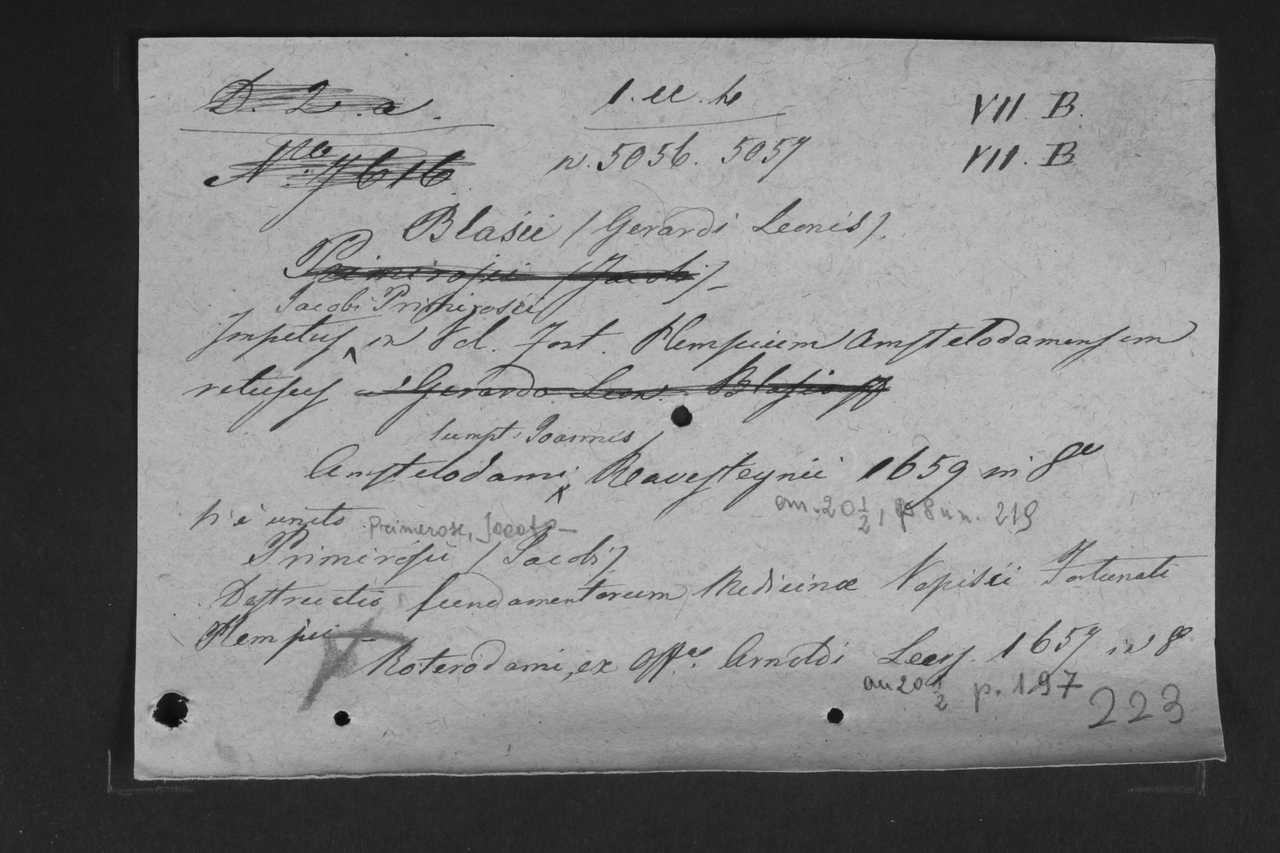 D. 2. a. 1. u. h VII. B.
N.ro 7616 n. 5056. 5057 VII. B
Blasii (Gerardi Leonis).
Primirosii (Jacobi)_
Jacobi Primirosii
Impetus in Vol. Fort. Plempium Amstelodamensem
retusus a Gerardo Leon. Blasio
sumpt. Joannis
Amstelodami, Ravesteynii 1659 in 8°
an. 20 1/2, p 8 u n. 219
h' è unito Primerose, Jacob—
Primirosii (Jacobi)
Destructio fundamentorum Medicinæ Vopisci Fortunati
Plempii —
Roterodami, ex Off.a Arnoldi Leers. 1657 in 8°
an 20 1/2 p. 197
223